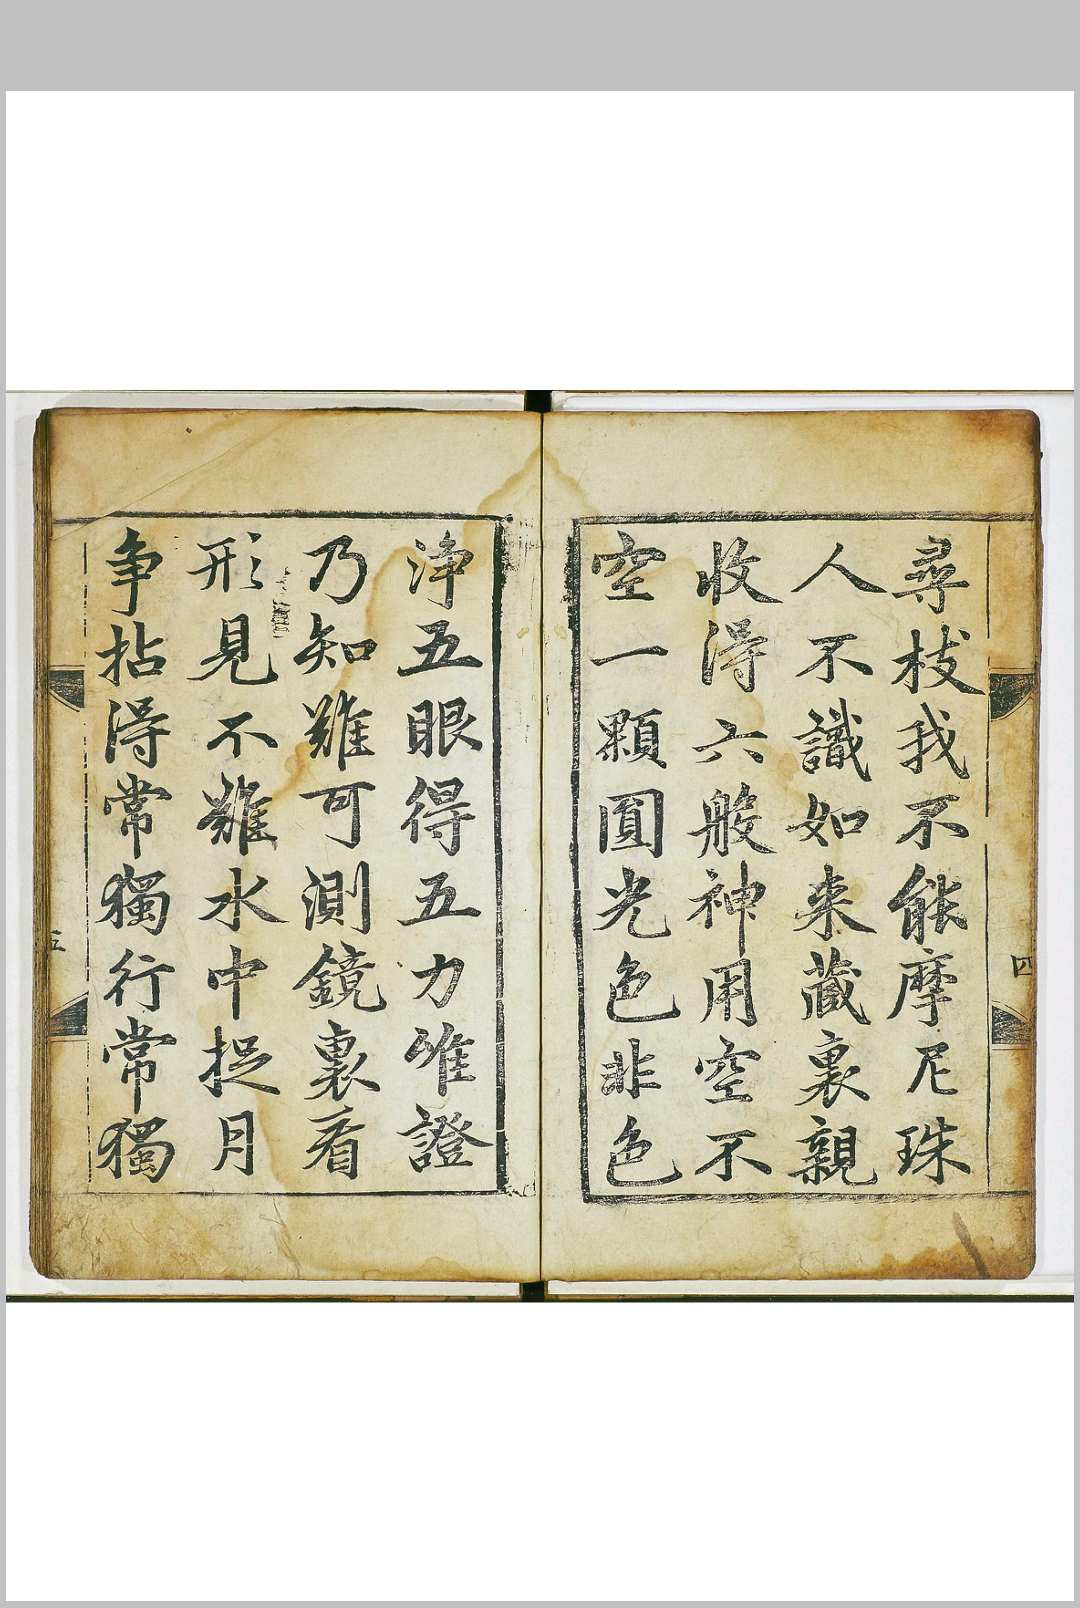 尋枝我不能摩尼珠
人不識如来藏裏親
收得六般神用空不
空一顆圓光色非色
四
浄五眼得五力唯證
乃知難可測鏡裏看
形見不難水中捉月
争拈得常獨行常獨
五